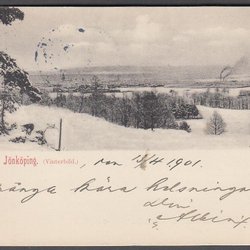 Jönköping. (Vinterbild.) den 15/4 1901.
många kära helsningar
Din